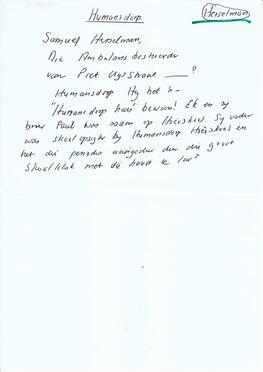 Humansdorp
Herselman
Samuel Herselman,
Die Ambulans bestuurder
van Piet Uys Straat ___?
Humansdorp Hy het 'n
"Humansdorp huis" bewoon! Ek en sy
broer Paul was saam op Hoërskool. Sy vader
was skoolopsigter by Humansdorp Hoërskool en
het die periodes aangedui deur die groot
Skoolklok met die hand te lui?